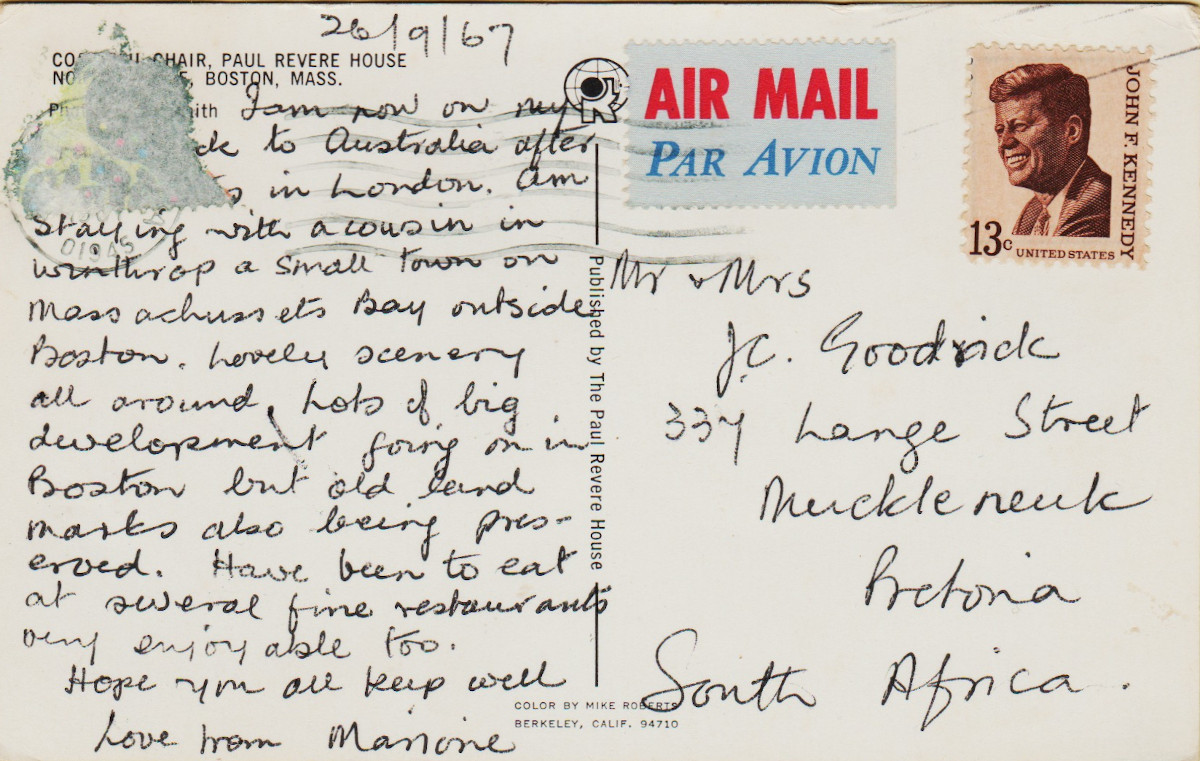 26/9/67
CHAIR, PAUL REVERE HOUSE
BOSTON, MASS.
I am now on my
to Australia after
in London. am
staying with a cousin in
Winthrop a small town on
Massachussets Bay outside
Boston. Lovely scenery
all around. Lots of big
development going on in
Boston but old land
marks also being pres-
erved. Have been to eat
at several fine restaurants
very enjoyable too.
Hope you all keep well
Love from Marione
01945
Published by The Paul Revere House
COLOR BY MIKE ROBERTS
BERKELEY, CALIF. 94710
AIR MAIL
PAR AVION
JOHN F. KENNEDY
13c
UNITED STATES
Mr & Mrs
J.C. Goodrick
337 Lange Street
Muckleneuk
Pretoria
South Africa.